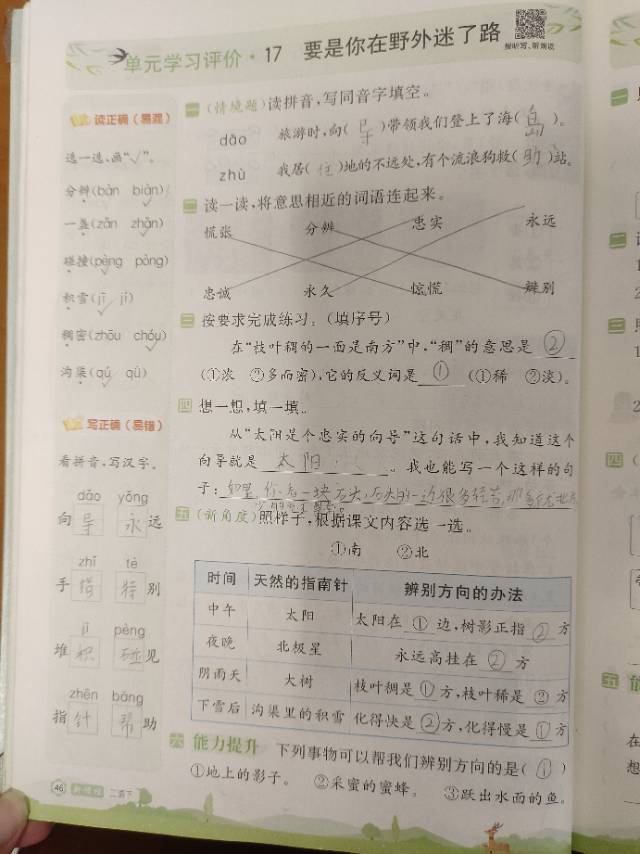 单元学习评价·17 要是你在野外迷了路
读正确（易混）
选一选，画“√”。
分辨(bàn biàn)
一盏(zǎn zhǎn)
碰撞(pèng pàng)
积雪(jī jí)
稠密(zhōu chóu)
沟渠(qú qǔ)
写正确（易错）
看拼音，写汉字。
dǎo yǒng
向导 永远
zhǐ tè
手指 特别
jī pèng
堆积 碰见
zhēn bāng
指针 帮助
一 (情境题)读拼音，写同音字填空。
dǎo 旅游时，向(导)带领我们登上了海(岛)。
zhù 我居(住)地的不远处，有个流浪狗救(助)站。
二 读一读，将意思相近的词语连起来。
慌张 分辨 忠实 永远
忠诚 永久 惊慌 辨别
三 按要求完成练习。(填序号)
在“枝叶稠的一面是南方”中，“稠”的意思是 ②
(①浓 ②多而密)，它的反义词是 ① (①稀 ②淡)。
四 想一想，填一填。
从“太阳是个忠实的向导”这句话中，我知道这个
向导就是 太阳 。我也能写一个这样的句
子：如果你看一块石头，石头的一边很多
五 (新角度)照样子，根据课文内容选一选。
①南 ②北
时间 天然的指南针 辨别方向的办法
中午 太阳 太阳在 ① 边，树影正指 ② 方
夜晚 北极星 永远高挂在 ② 方
阴雨天 大树 枝叶稠是 ① 方，枝叶稀是 ② 方
下雪后 沟渠里的积雪 化得快是 ② 方，化得慢是 ① 方
六 能力提升 下列事物可以帮我们辨别方向的是( ① )
①地上的影子。 ②采蜜的蜜蜂。 ③跃出水面的鱼。
46 二语下